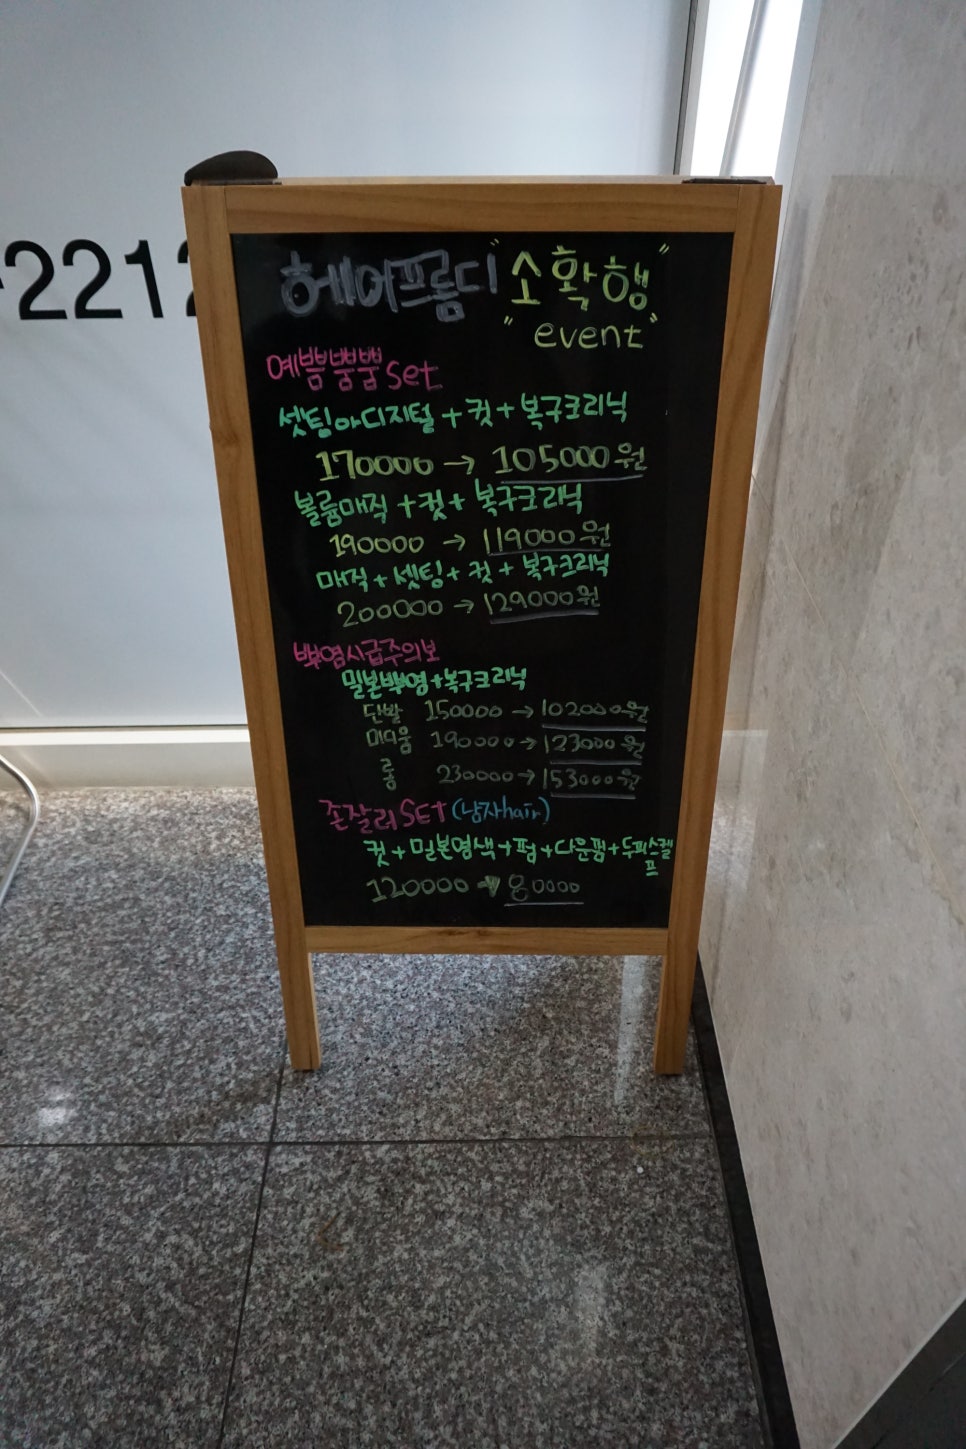 2212
헤어프롬디 "소확행"
"event"
예쁨뿜뿜 set
셋팅아디지털 + 컷 + 복구크리닉
170000 → 105000원
볼륨매직 + 컷 + 복구크리닉
190000 → 119000원
매직 + 셋팅 + 컷 + 복구크리닉
200000 → 129000원
뿌염시급주의보
밀본뿌염 + 복구크리닉
단발 150000 → 102000원
미디움 190000 → 123000원
롱 230000 → 153000원
존잘러 SET (남자hair)
컷 + 밀본염색 + 펌 + 다운펌 + 두피스켈
프
120000 → 80000